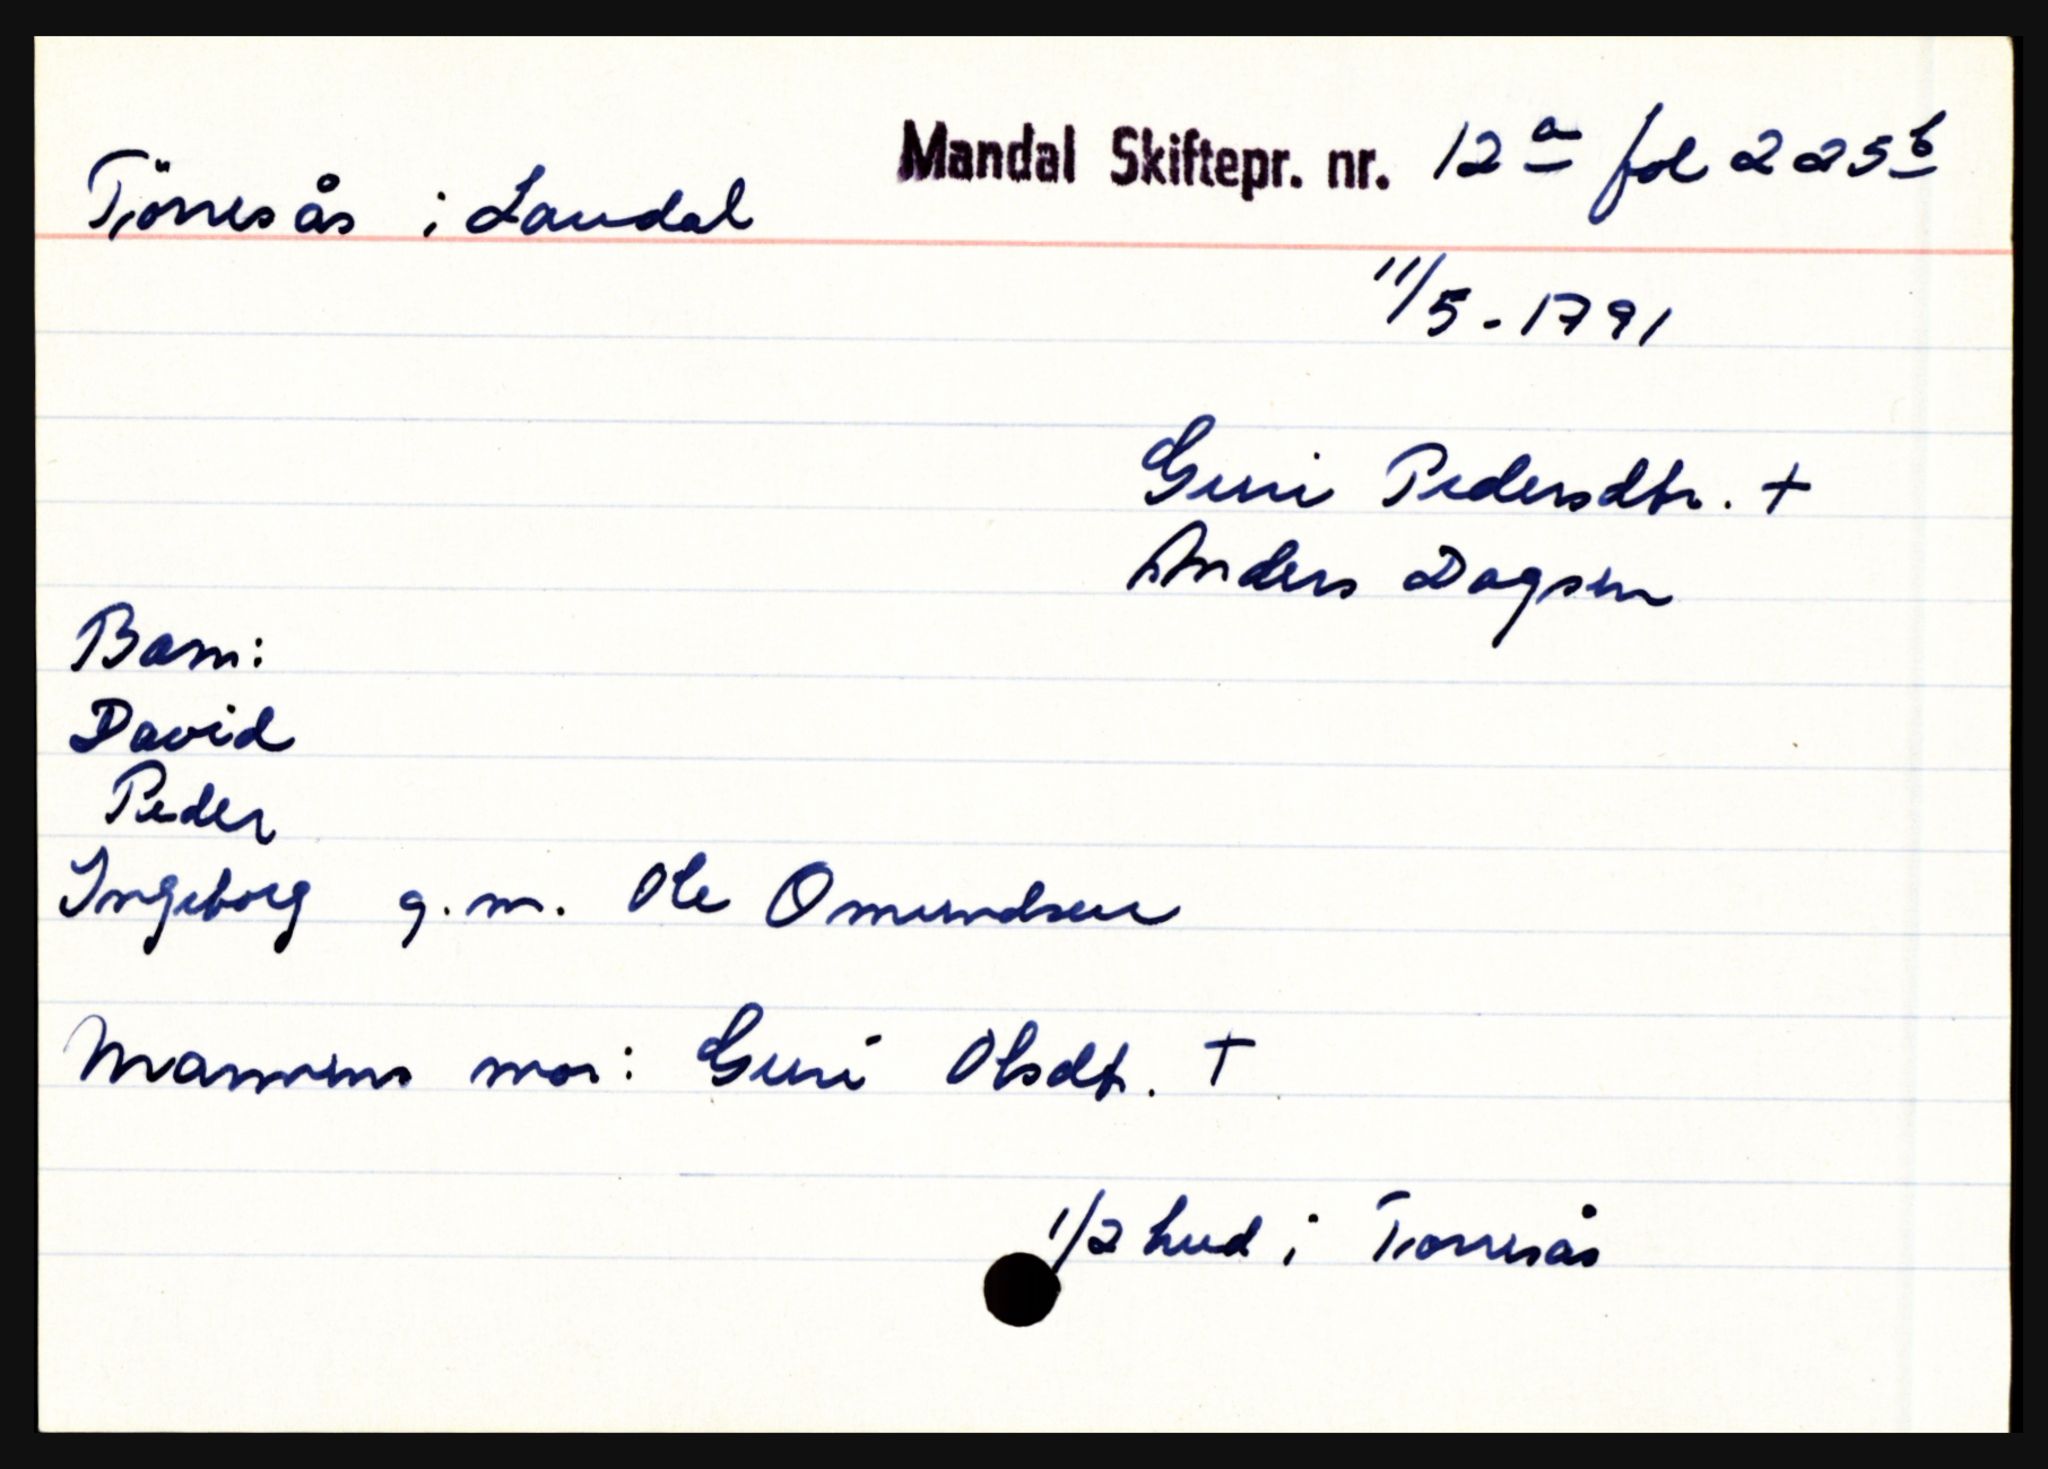 Mandal Skiftepr. nr. 12a fol 225b
Tjörresås i Laudal
11/5-1791
Guri Pedersdtr. +
Anders Dagsen
Barn:
David
Peder
Ingeborg g.m. Ole Omundsen
Mannens mor: Guri Olsdtr. +
1/2 hud i Tjorresås